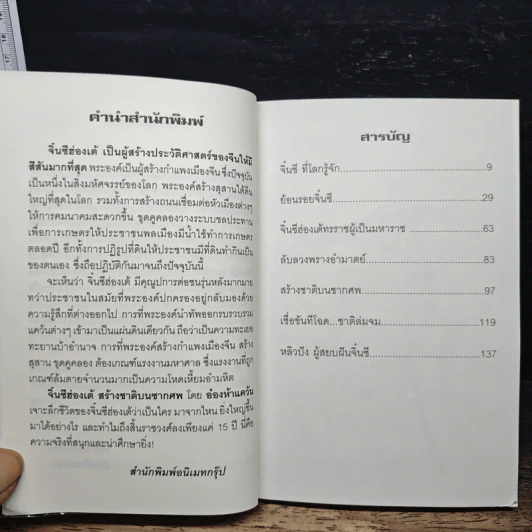 คำนำสำนักพิมพ์
จิ๋นซีฮ่องเต้ เป็นผู้สร้างประวัติศาสตร์ของจีนให้มี
สีสันมากที่สุด พระองค์เป็นผู้สร้างกำแพงเมืองจีน ซึ่งปัจจุบัน
เป็นหนึ่งในสิ่งมหัศจรรย์ของโลก พระองค์สร้างสุสานใต้ดิน
ใหญ่ที่สุดในโลก รวมทั้งการสร้างถนนเชื่อมต่อหัวเมืองต่างๆ
ให้การคมนาคมสะดวกขึ้น ขุดคูคลองวางระบบชลประทาน
เพื่อการเกษตรให้ประชาชนพลเมืองมีน้ำใช้ทำการเกษตร
ตลอดปี อีกทั้งการปฏิรูปที่ดินให้ประชาชนมีที่ดินทำกินเป็น
ของตนเอง ซึ่งถือปฏิบัติกันมาจนถึงปัจจุบันนี้
จะเห็นว่า จิ๋นซีฮ่องเต้ มีคุณูปการต่อชนรุ่นหลังมากมาย
ทว่าประชาชนในสมัยที่พระองค์ปกครองอยู่กลับมองด้วย
ความรู้สึกที่ต่างออกไป การที่พระองค์นำทัพออกรบรวบรวม
แคว้นต่างๆ เข้ามาเป็นแผ่นดินเดียวกัน ถือว่าเป็นความทะเยอ
ทะยานบ้าอำนาจ การที่พระองค์สร้างกำแพงเมืองจีน สร้าง
สุสาน ขุดคูคลอง ต้องเกณฑ์แรงงานมหาศาล ซึ่งแรงงานที่ถูก
เกณฑ์ล้มตายจำนวนมากเป็นความโหดเหี้ยมอำมหิต
จิ๋นซีฮ่องเต้ สร้างชาติบนซากศพ โดย อ๋องห้าแคว้น
เจาะลึกชีวิตของจิ๋นซีฮ่องเต้ว่าเป็นใคร มาจากไหน ยิ่งใหญ่ขึ้น
มาได้อย่างไร และทำไมถึงสิ้นราชวงศ์ลงเพียงแค่ 15 ปี นี่คือ
ความจริงที่สนุกและน่าศึกษายิ่ง!
สำนักพิมพ์อนิเมทกรุ๊ป
สารบัญ
จิ๋นซี ที่โลกรู้จัก 9
ย้อนรอยจิ๋นซี 29
จิ๋นซีฮ่องเต้ทรราชผู้เป็นมหาราช 63
ลับลวงพรางอำมาตย์ 83
สร้างชาติบนซากศพ 97
เชื่อขันทีโฉด...ชาติล่มจม 119
หลิวปัง ผู้สยบฝันจิ๋นซี 137
17
18
19